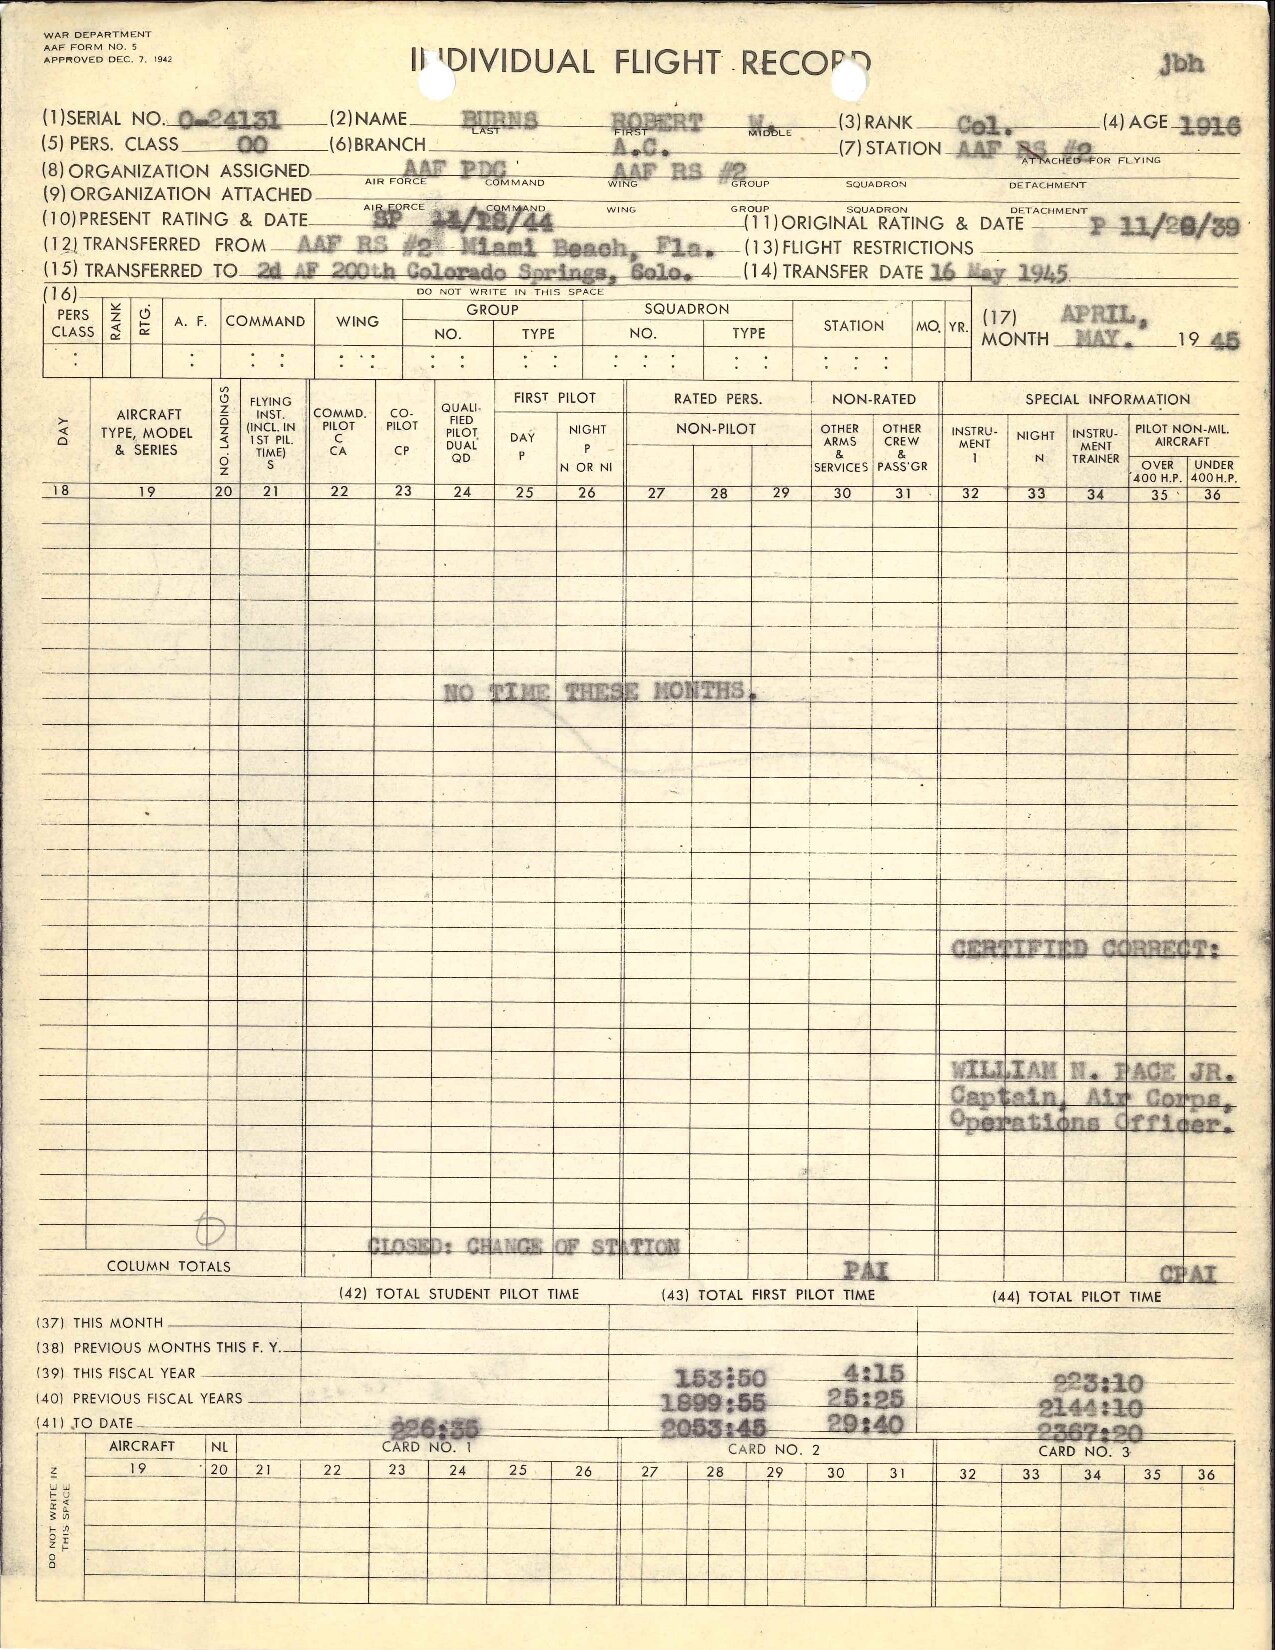 WAR DEPARTMENT
AAF FORM NO. 5
APPROVED DEC. 7, 1942
INDIVIDUAL FLIGHT RECORD
jbh
(1) SERIAL NO. O-24131 (2) NAME BURNS ROBERT W. (3) RANK Col. (4) AGE 1916
LAST FIRST MIDDLE
(5) PERS. CLASS 00 (6) BRANCH A.C. (7) STATION AAF RS #2
ATTACHED FOR FLYING
(8) ORGANIZATION ASSIGNED AAF PDC AAF RS #2
AIR FORCE COMMAND WING GROUP SQUADRON DETACHMENT
(9) ORGANIZATION ATTACHED
AIR FORCE COMMAND WING GROUP SQUADRON DETACHMENT
(10) PRESENT RATING & DATE SP 11/28/44 (11) ORIGINAL RATING & DATE P 11/28/39
(12) TRANSFERRED FROM AAF RS #2 Miami Beach, Fla. (13) FLIGHT RESTRICTIONS
(15) TRANSFERRED TO 2d AF 200th Colorado Springs, Colo. (14) TRANSFER DATE 16 May 1945
(16) DO NOT WRITE IN THIS SPACE
PERS CLASS RANK RTG. A. F. COMMAND WING GROUP SQUADRON STATION MO. YR.
NO. TYPE NO. TYPE
(17) APRIL,
MONTH MAY. 19 45
DAY AIRCRAFT TYPE, MODEL & SERIES NO. LANDINGS FLYING INST. (INCL. IN 1ST PIL. TIME) S COMMD. PILOT C CA CO-PILOT CP QUALI-FIED PILOT DUAL QD FIRST PILOT DAY P NIGHT P N OR NI RATED PERS. NON-PILOT NON-RATED OTHER ARMS & SERVICES OTHER CREW & PASS'GR SPECIAL INFORMATION INSTRU-MENT I NIGHT N INSTRU-MENT TRAINER PILOT NON-MIL. AIRCRAFT OVER 400 H.P. UNDER 400 H.P.
18 19 20 21 22 23 24 25 26 27 28 29 30 31 32 33 34 35 36
NO TIME THESE MONTHS.
CERTIFIED CORRECT:
WILLIAM N. PACE JR.
Captain, Air Corps,
Operations Officer.
CLOSED: CHANGE OF STATION
COLUMN TOTALS PAI CPAI
(42) TOTAL STUDENT PILOT TIME (43) TOTAL FIRST PILOT TIME (44) TOTAL PILOT TIME
(37) THIS MONTH
(38) PREVIOUS MONTHS THIS F. Y.
(39) THIS FISCAL YEAR 153:50 4:15 223:10
(40) PREVIOUS FISCAL YEARS 1899:55 25:25 2144:10
(41) TO DATE 226:35 2053:45 29:40 2367:20
AIRCRAFT NL CARD NO. 1 CARD NO. 2 CARD NO. 3
19 20 21 22 23 24 25 26 27 28 29 30 31 32 33 34 35 36
DO NOT WRITE IN THIS SPACE